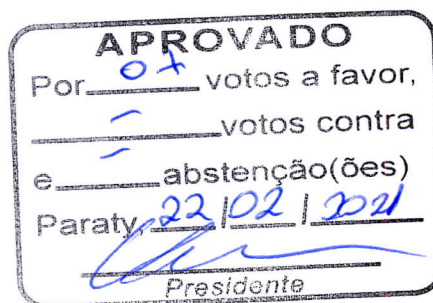 APROVADO
Por 07 votos a favor,
- votos contra
e - abstenção(ões)
Paraty, 22/02/2021
Presidente